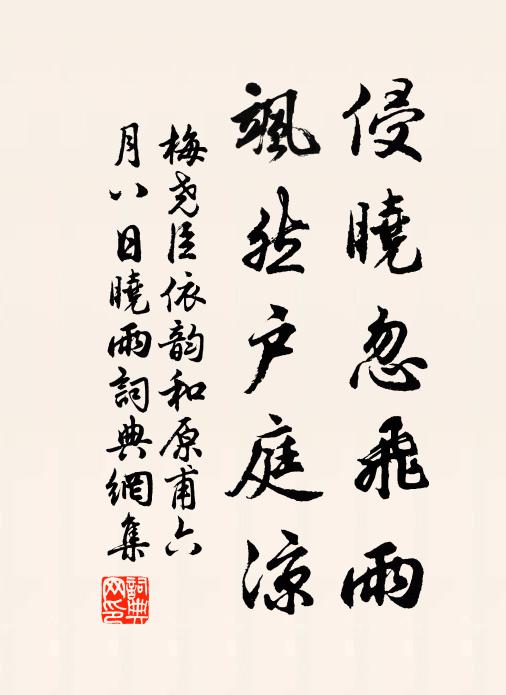 侵曉忽飛雨
颯然户庭涼
梅尧臣依韵和原甫六
月八日曉雨詞典網集
詞典
网印